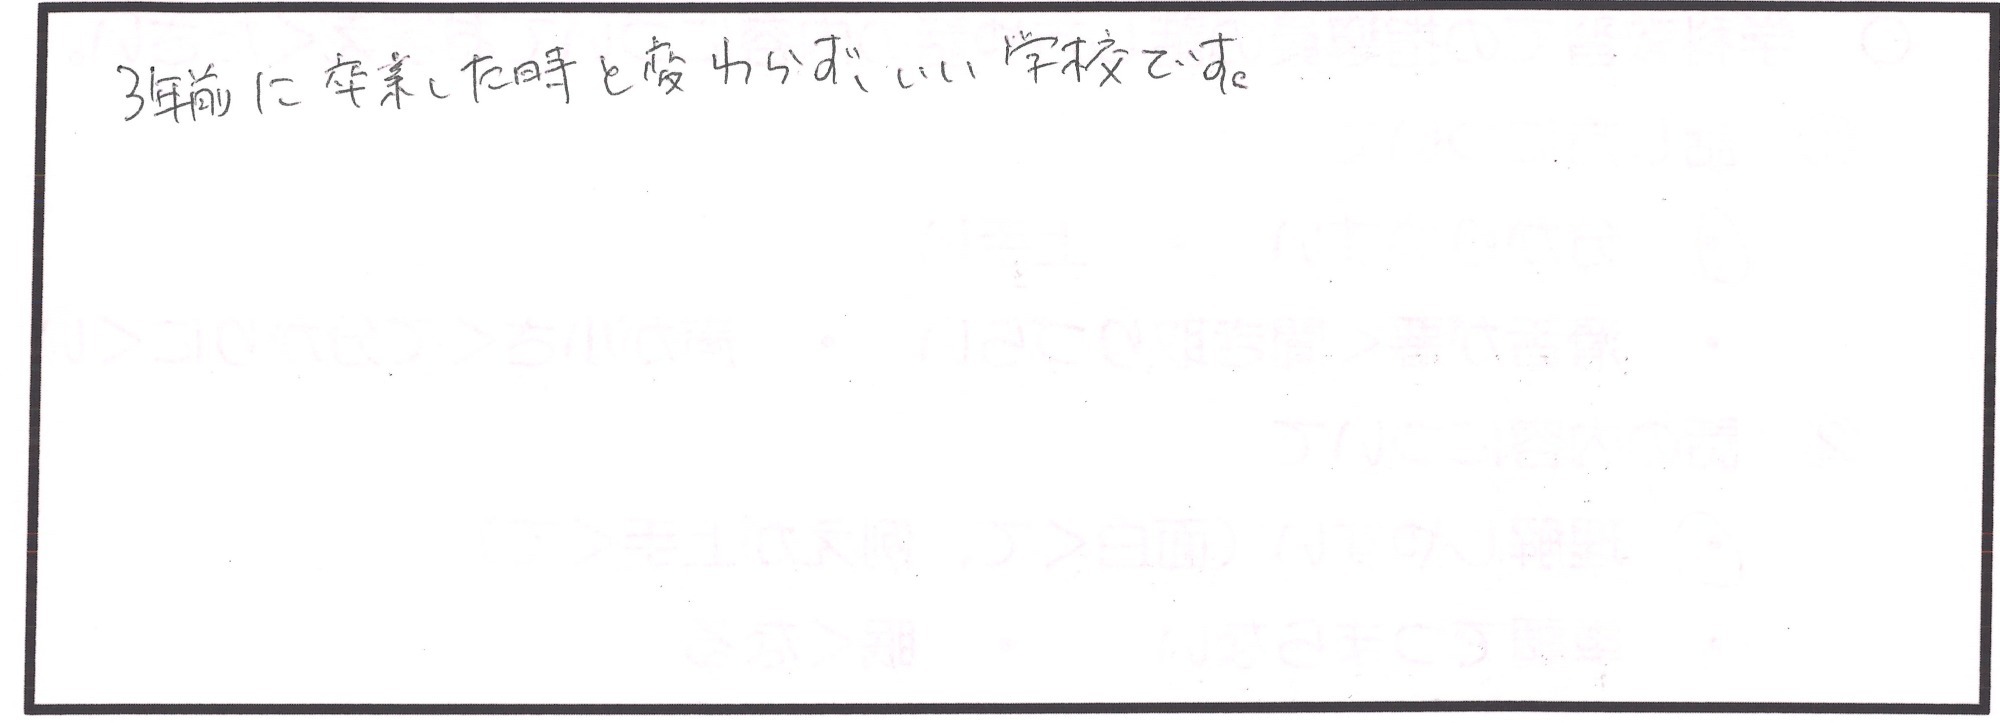 3年前に卒業した時と変わらず、いい学校です。